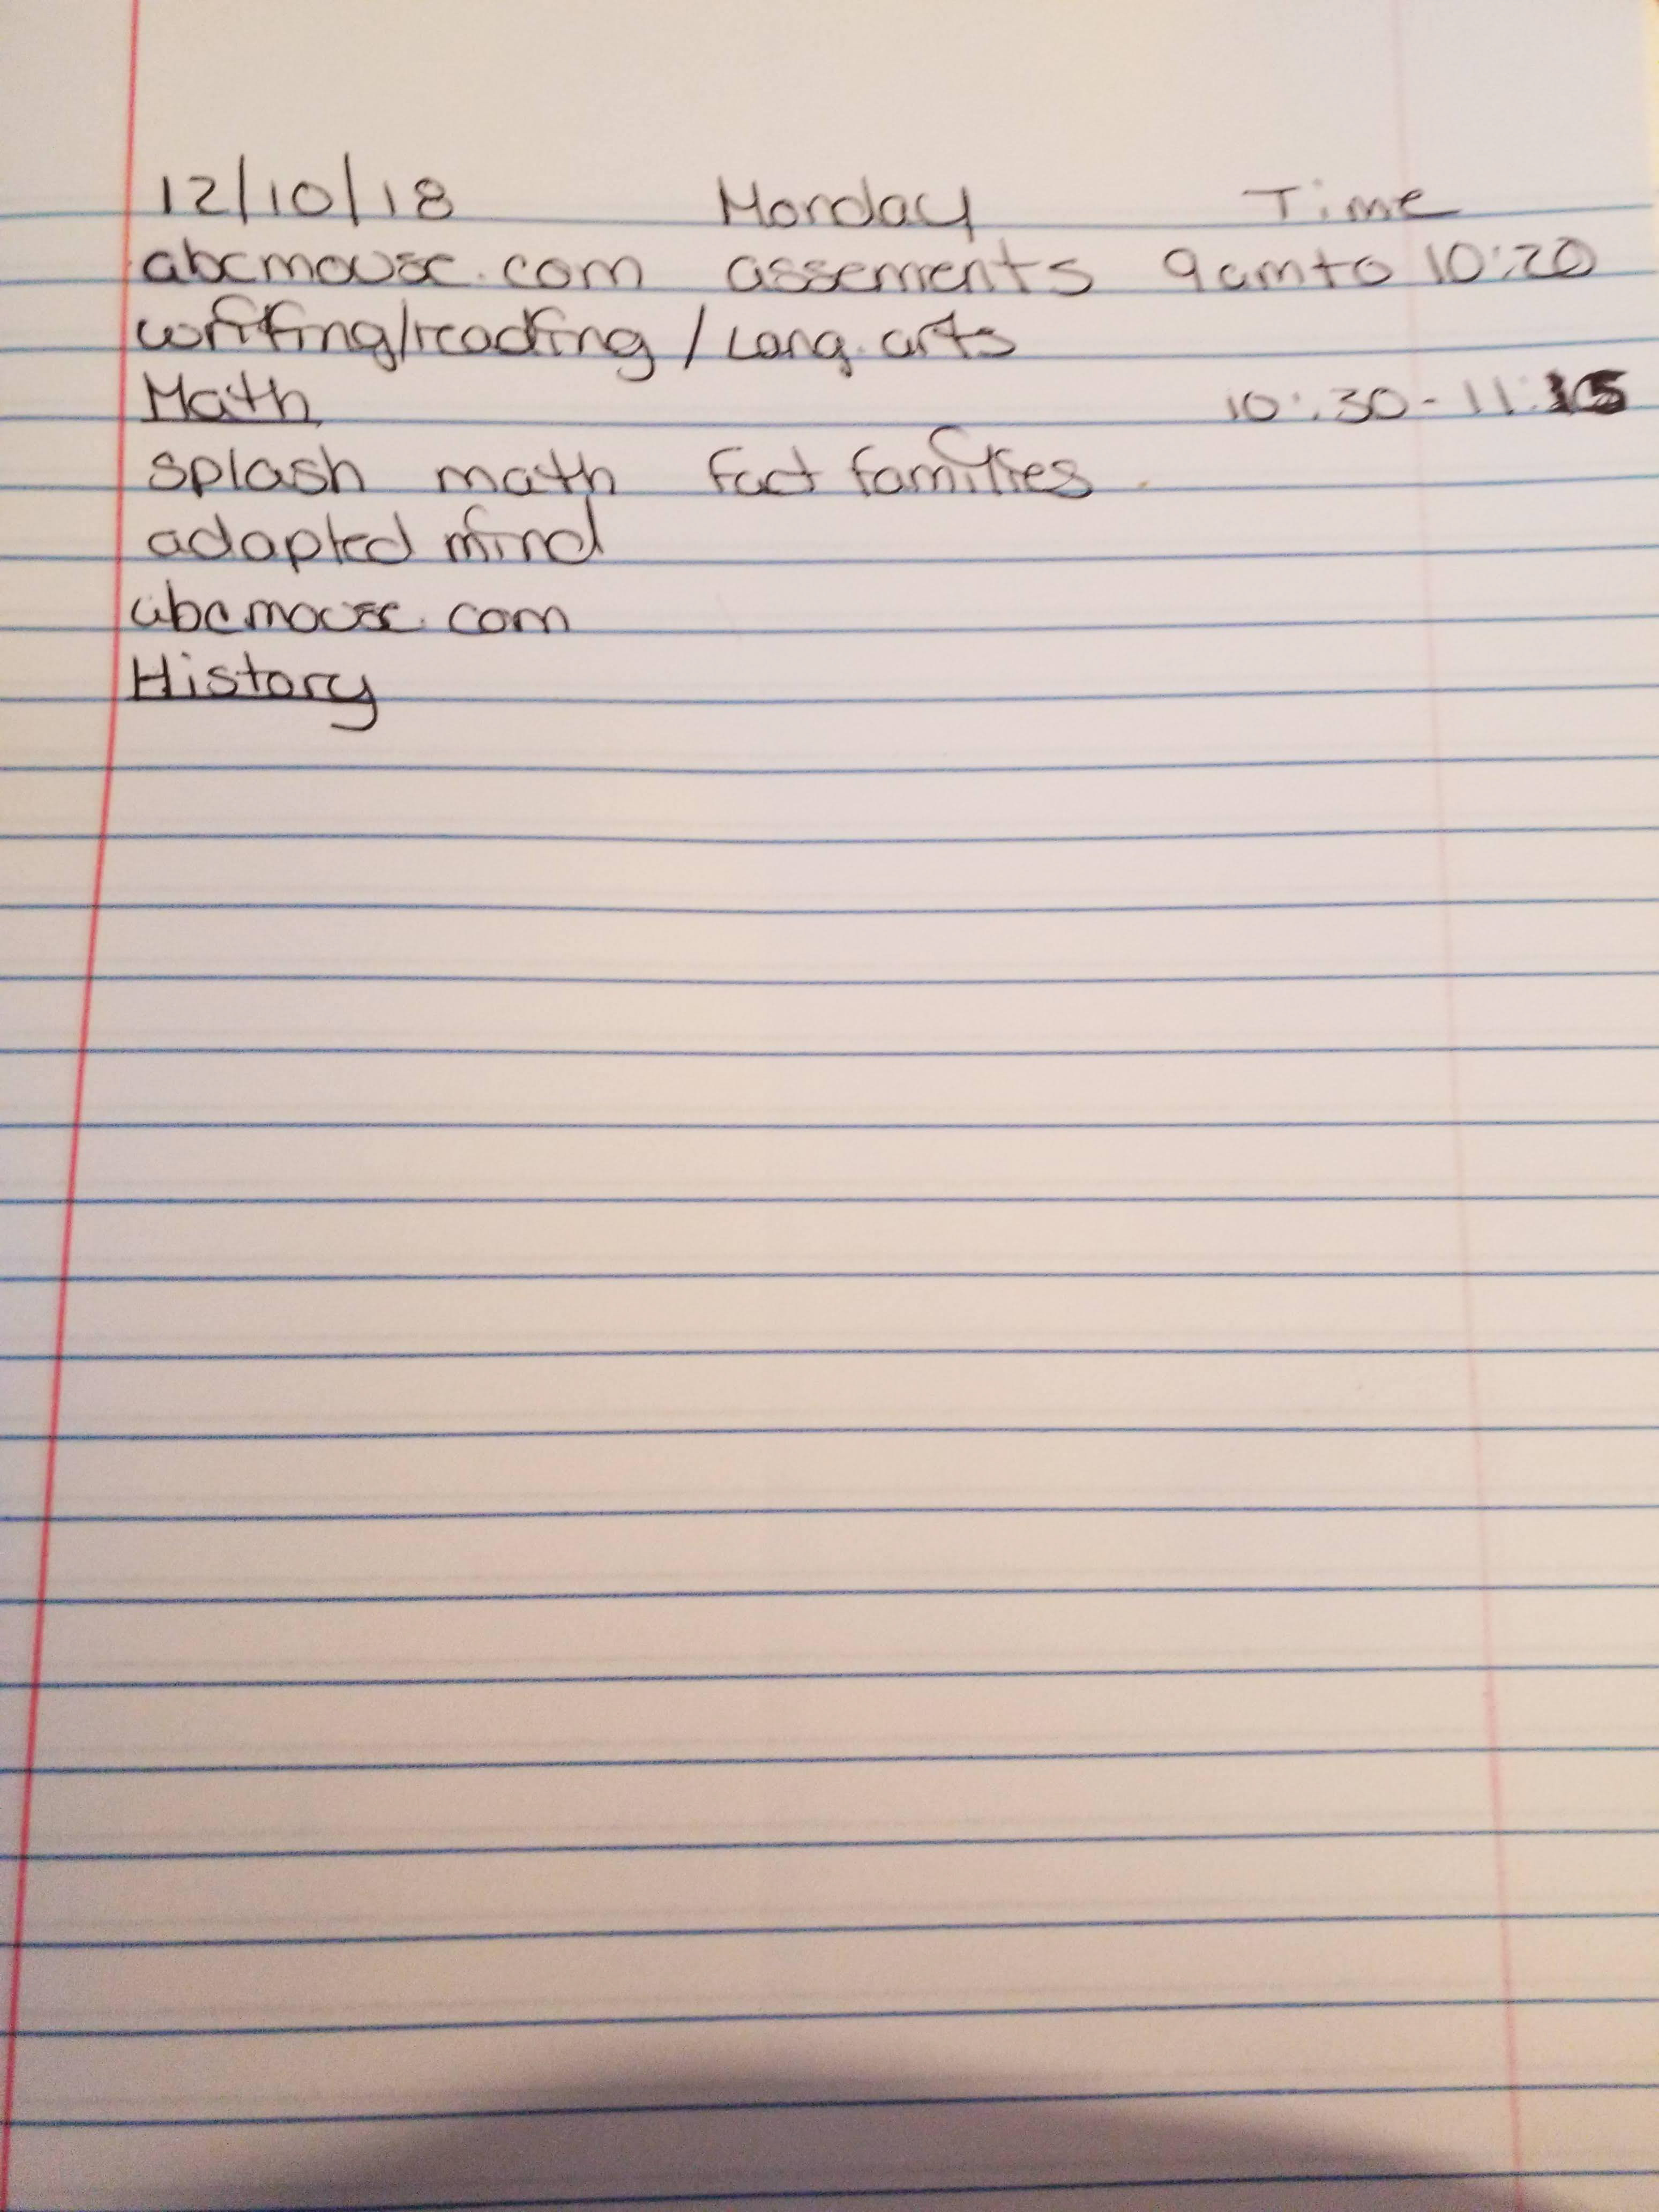 12/10/18 Monday Time
abcmouse.com assements 9am to 10:20
writing/reading / Lang. arts
Math 10:30-11:15
splash math fact families
adapted mind
abcmouse.com
History